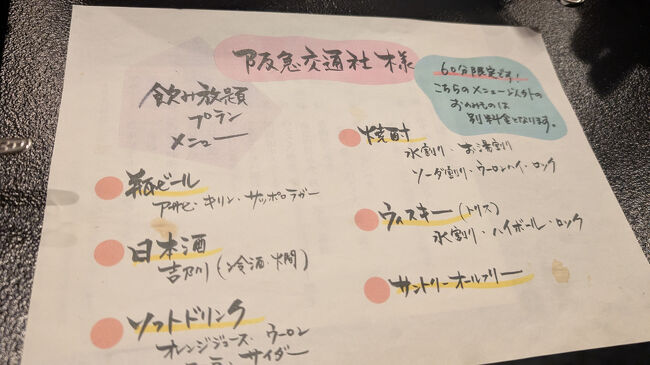 阪急交通社様
60分限定です!
こちらのメニュー以外の
おのみものは
別料金となります。
飲み放題
プラン
メニュー
瓶ビール
アサヒ・キリン・サッポロラガー
日本酒
吉乃川(冷酒・燗)
ソフトドリンク
オレンジジュース・ウーロン
サイダー
焼酎
水割り・お湯割り
ソーダ割り・ウーロンハイ・ロック
ウィスキー(トリス)
水割り・ハイボール・ロック
サントリーオールフリー